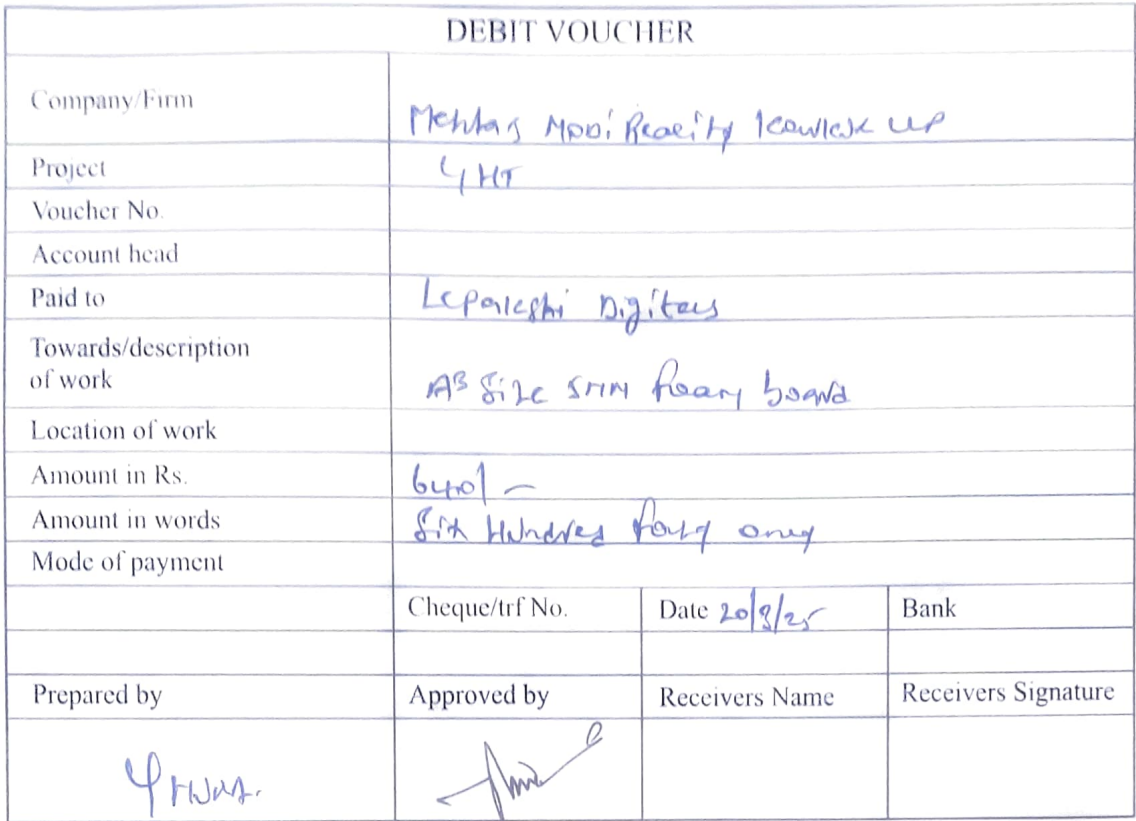 DEBIT VOUCHER
Company/Firm Mehta & Modi Reality Kowkur LLP
Project GHT
Voucher No.
Account head
Paid to Lepakshi Digitals
Towards/description
of work A3 Size 5MM board
Location of work
Amount in Rs. 640/-
Amount in words Six Hundred Forty only
Mode of payment
Cheque/trf No. Date 20/3/25 Bank
Prepared by Approved by Receivers Name Receivers Signature